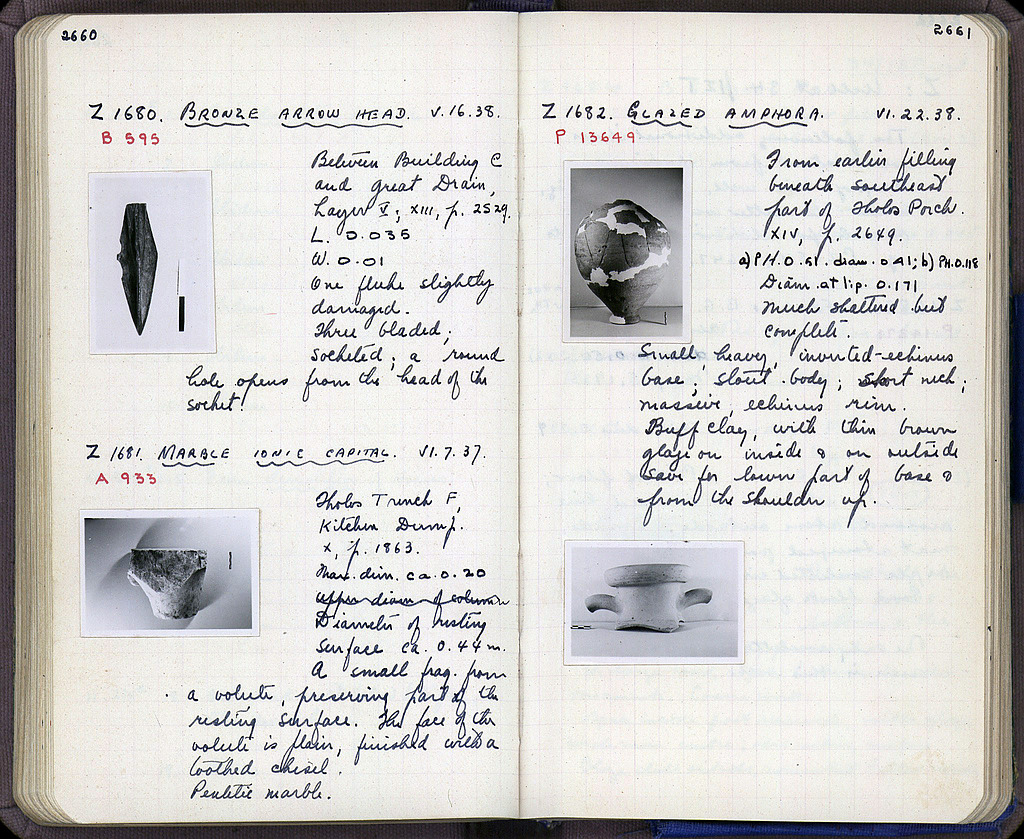 2660
Z 1680. BRONZE ARROW HEAD. V.16.38.
B 595
Between Building C
and great Drain,
Layer V; XIII, p. 2529.
L. 0.035
W. 0.01
One fluke slightly
damaged.
Three bladed;
socketed; a round
hole opens from the head of the
socket.
Z 1681. MARBLE IONIC CAPITAL. VI.7.37.
A 933
Tholos Trench F,
Kitchen Dump.
X, p. 1863.
Max. dim. ca. 0.20
upper diam of column
Diameter of resting
surface ca. 0.44 m.
A small frag. from
a volute, preserving part of the
resting surface. The face of the
volute is plain, finished with a
toothed chisel.
Pentelic marble.
2661
Z 1682. GLAZED AMPHORA. VI.22.38.
P 13649
From earlier filling
beneath southeast
part of Tholos Porch.
XIV, p. 2649.
a) P.H. 0.51. diam. 0.41; b) PH. 0.118
Diam. at lip. 0.171
Much shattered but
complete.
Small, heavy, inverted-echinus
base; stout body; short neck;
massive, echinus rim.
Buff clay, with thin brown
glaze on inside & on outside
save for lower part of base &
from the shoulder up.